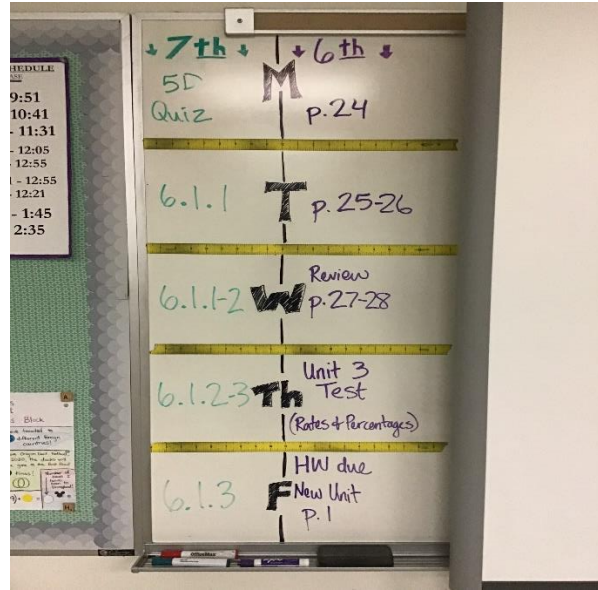 HEDULE
9:51
10:41
- 11:31
- 12:05
12:55
- 12:55
- 12:21
- 1:45
2:35
s Block
7th
6th
M
5D
Quiz
p.24
T
6.1.1
p. 25-26
W
6.1.1-2
Review
p.27-28
Th
6.1.2-3
Unit 3
Test
(Rates & Percentages)
F
6.1.3
HW due
New Unit
p. 1
OfficeMax